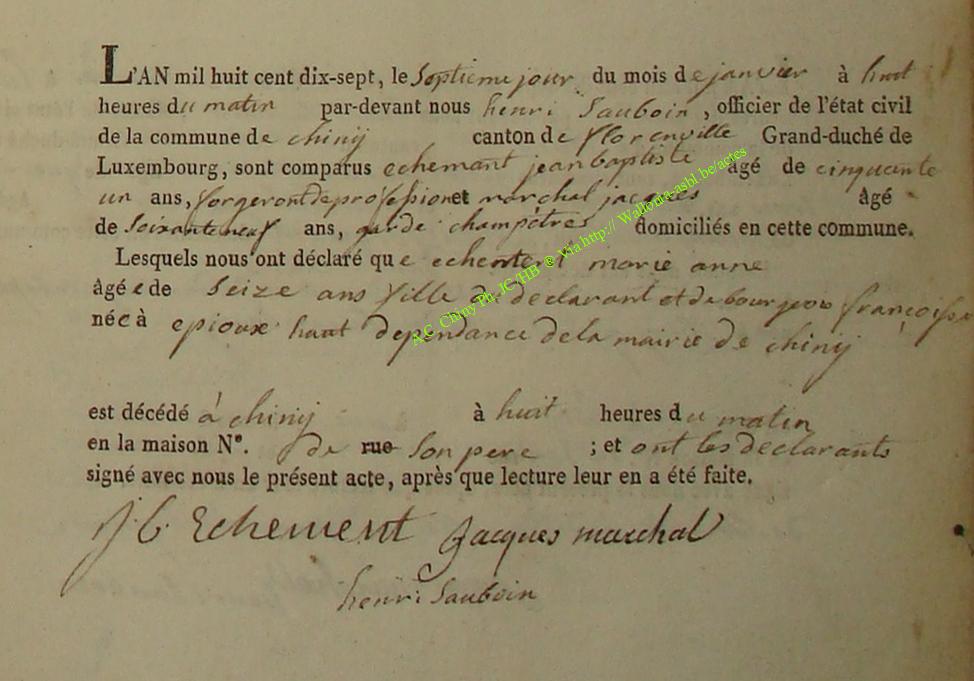 L'AN mil huit cent dix-sept, le Septieme jour du mois de janvier à huit
heures du matin par-devant nous henri Sauboin, officier de l'état civil
de la commune de chinij canton de florenville Grand-duché de
Luxembourg, sont comparus echemant jean baptiste âgé de cinquante
un ans, forgeront de profession et marchal jacques âgé
de Soixante neuf ans, garde champêtres domiciliés en cette commune.
Lesquels nous ont déclaré que echement marie anne
âgée de Seize ans fille du declarant et de bourgeois françoise
née à epioux haut dependance de la mairie de chinij
est décédé à chinij à huit heures du matin
en la maison N°. de rue Son pere ; et ont les declarants
signé avec nous le présent acte, après que lecture leur en a été faite.
J b Echement Jacques marchal
henri Sauboin
A.C. Chiny Ph. JC/HB ® Via http:// Wallonia-asbl.be/actes